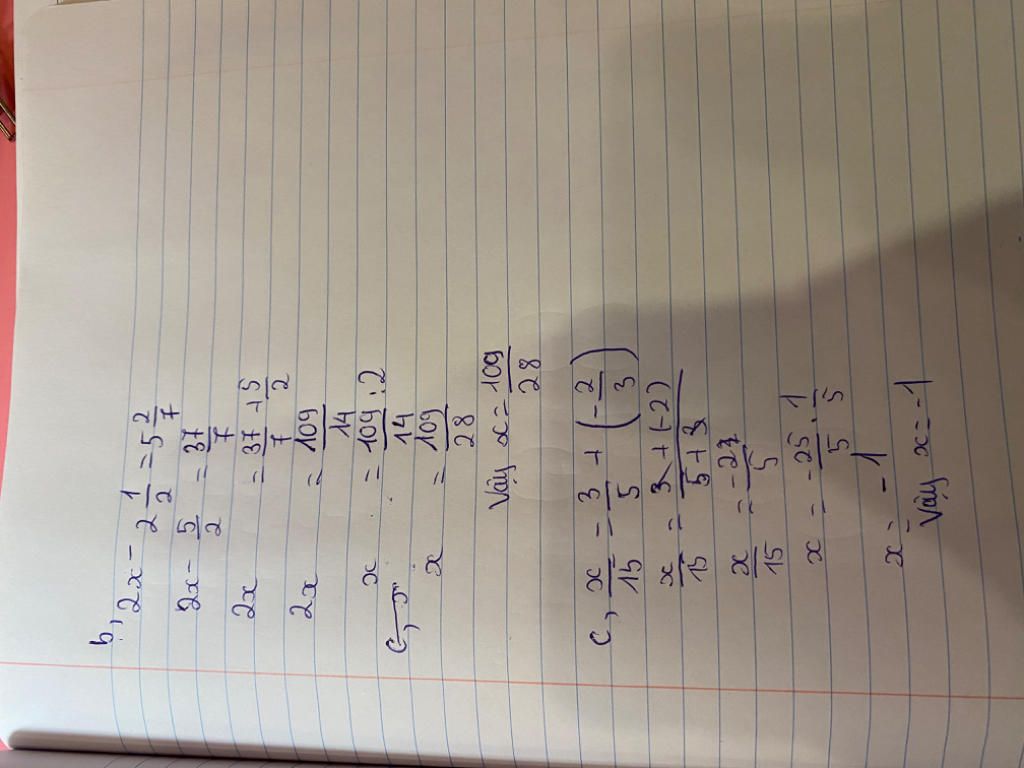 b, 2x - 2 1/2 = 5 2/7
2x - 5/2 = 37/7
2x = 37/7 + 5/2
2x = 109/14
x = 109/14 : 2
c,
x = 109/28
Vậy x = 109/28
c, x/15 = 3/5 + (-2/3)
x/15 = 3 + (-2)/5 + 3
x/15 = -27/5
x = -25/5 . 1/5
x = -1
Vậy x = -1